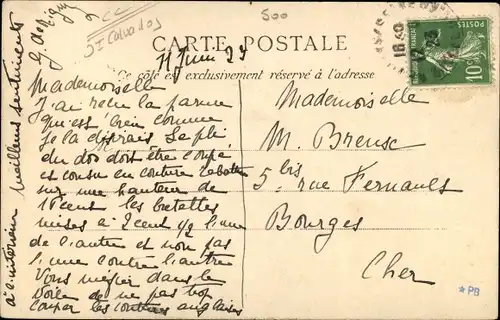 500
(Calvados)
11 Juin 23
CARTE POSTALE
Ce côté est exclusivement réservé à l'adresse
10c
POSTES
Mademoiselle
J'ai reçu la forme
qu'est bien comme
je la disais. Le pli
du dos doit être coupé
et cousu en couture rabattue
sur une hauteur de
18 cent les bretelles
mises à 2 cent 1/2 l'une
de l'autre et non pas
l'une contre l'autre
Vous méfier dans le
voile de ne pas trop
couper les coutures anglaises
à l'intérieur meilleurs sentiments
Mademoiselle
M. Breuse
5 bis rue Fernault
Bourges
Cher
*PB